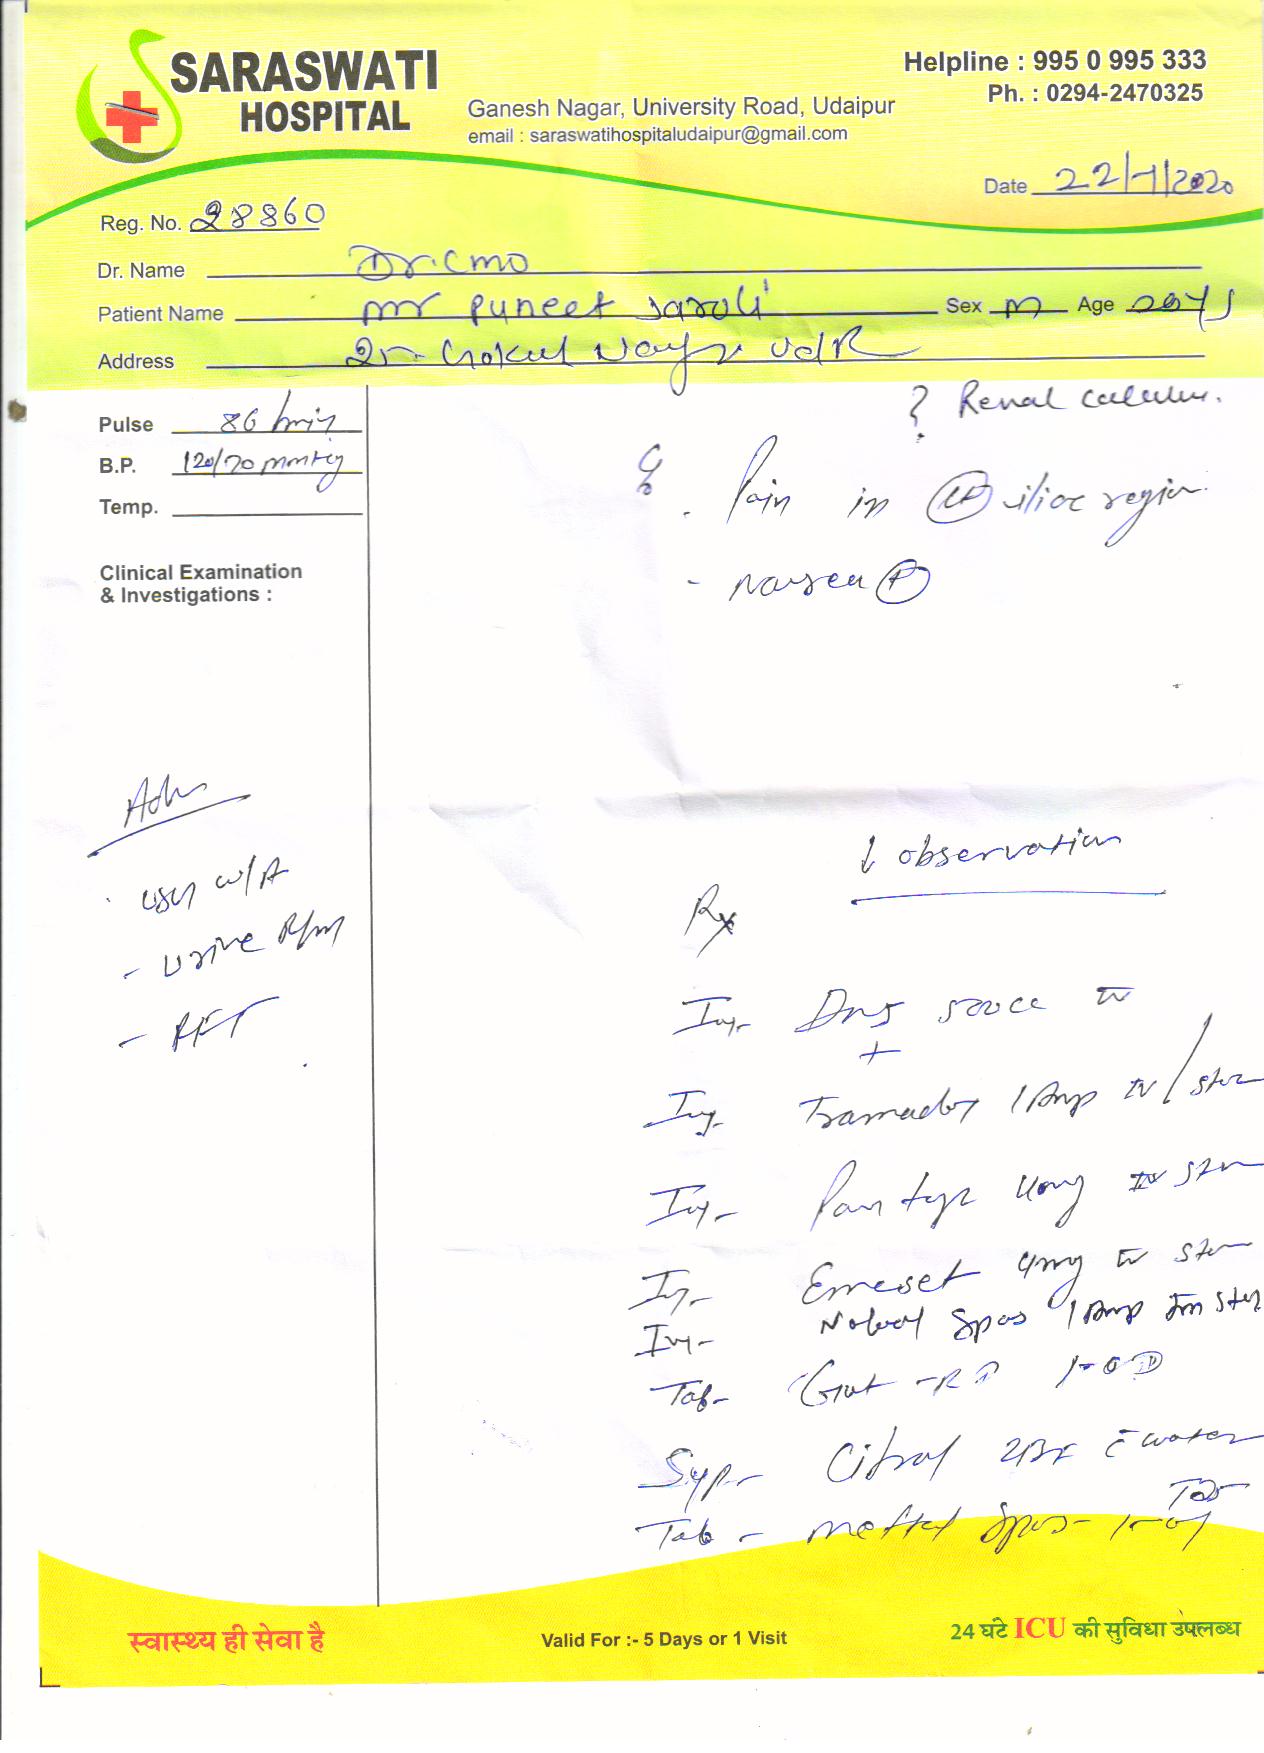 SARASWATI
HOSPITAL
Ganesh Nagar, University Road, Udaipur
email : saraswatihospitaludaipur@gmail.com
Helpline : 995 0 995 333
Ph. : 0294-2470325
Date 22/1/2020
Reg. No. 28860
Dr. Name Dr. CMO
Patient Name Mr Puneet Jaroli Sex M Age
Address Gokul UdR
Pulse 86/min
B.P. 120/70 mmHg
Temp.
Clinical Examination
& Investigations :
? Renal calculus.
C/o
- Pain in iliac region
- Nausea (P)
Adv
- USG w/A
- Urine R/M
- RFT
↓ observation
Rx
Inj- DNS 500cc IV
+
Inj- Tramadol 1 Amp IV/stat
Inj- Pantop 40mg IV stat
Inj- Emeset 4mg IV stat
Inj- Spas 1 Amp Im stat
Tab- 1-OD
Syp- Citral c̄ water
TDS
Tab- Meftal Spas-
स्वास्थ्य ही सेवा है
Valid For :- 5 Days or 1 Visit
24 घंटे ICU की सुविधा उपलब्ध